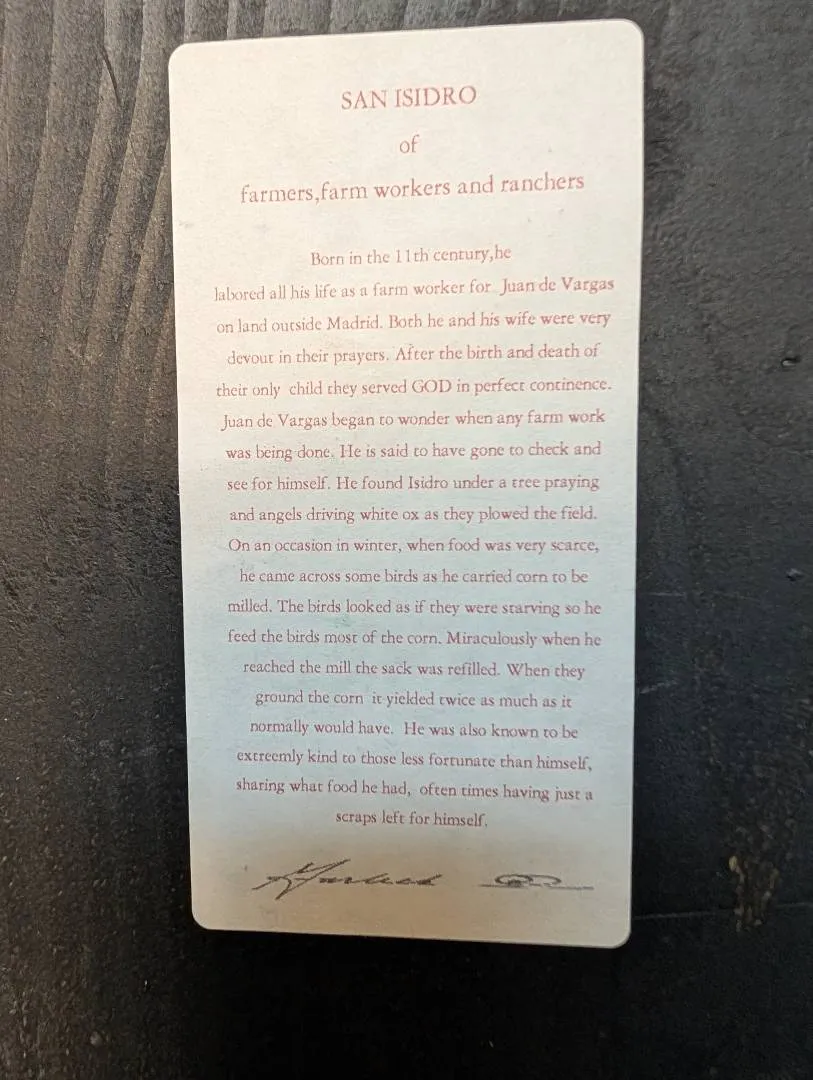 SAN ISIDRO
of
farmers,farm workers and ranchers
Born in the 11th century,he
labored all his life as a farm worker for Juan de Vargas
on land outside Madrid. Both he and his wife were very
devout in their prayers. After the birth and death of
their only child they served GOD in perfect continence.
Juan de Vargas began to wonder when any farm work
was being done. He is said to have gone to check and
see for himself. He found Isidro under a tree praying
and angels driving white ox as they plowed the field.
On an occasion in winter, when food was very scarce,
he came across some birds as he carried corn to be
milled. The birds looked as if they were starving so he
feed the birds most of the corn. Miraculously when he
reached the mill the sack was refilled. When they
ground the corn it yielded twice as much as it
normally would have. He was also known to be
extreemly kind to those less fortunate than himself,
sharing what food he had, often times having just a
scraps left for himself.